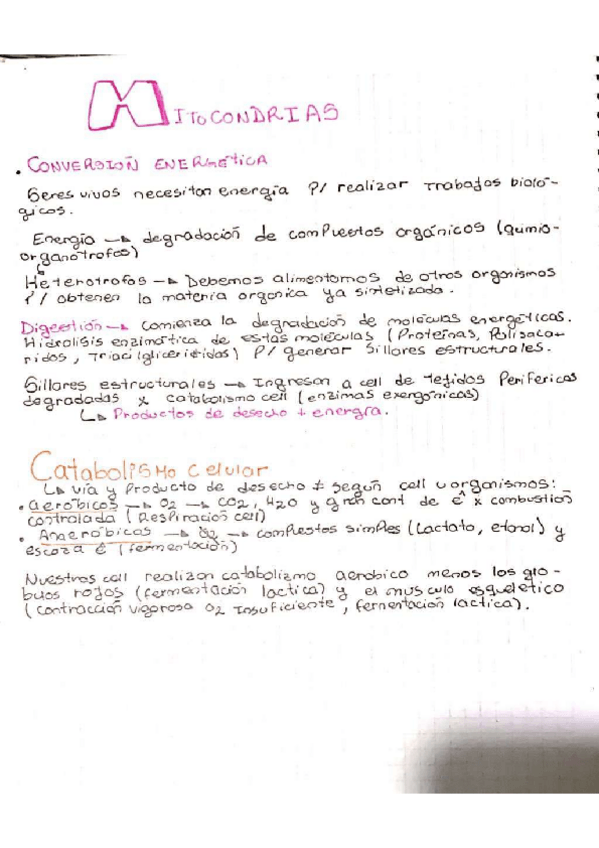 MITOCONDRIAS
• CONVERSIÓN ENERGÉTICA
Seres vivos necesitan energía P/ realizar trabajos bioló-
gicos.
Energía → degradación de compuestos orgánicos (quimio-
organótrofos)
Heterótrofos → Debemos alimentarnos de otros organismos
P/ obtener la materia orgánica ya sintetizada.
Digestión → comienza la degradación de moléculas energéticas.
Hidrólisis enzimática de estas moléculas (Proteínas, Polisaca-
ridos, Triacilgliceriétidos) P/ generar sillares estructurales.
Sillares estructurales → Ingresan a cell de tejidos Perifericos
degradadas x catabolismo cell (enzimas exergónicas)
↳ Productos de desecho + energía.
Catabolismo celular
↳ vía y Producto de desecho ≠ según cell u organismos:
• aeróbicos → O2 → CO2, H2O y gran cant de é x combustión
controlada (Respiración cell)
• Anaeróbicas → O2 → compuestos simples (Lactato, etanol) y
escaza é (fermentación)
Nuestras cell realizan catabolizmo aerobico menos los glo-
bulos rojos (fermentación lactica) y el musculo esquelético
(contracción vigorosa O2 insuficiente, fermentación láctica).